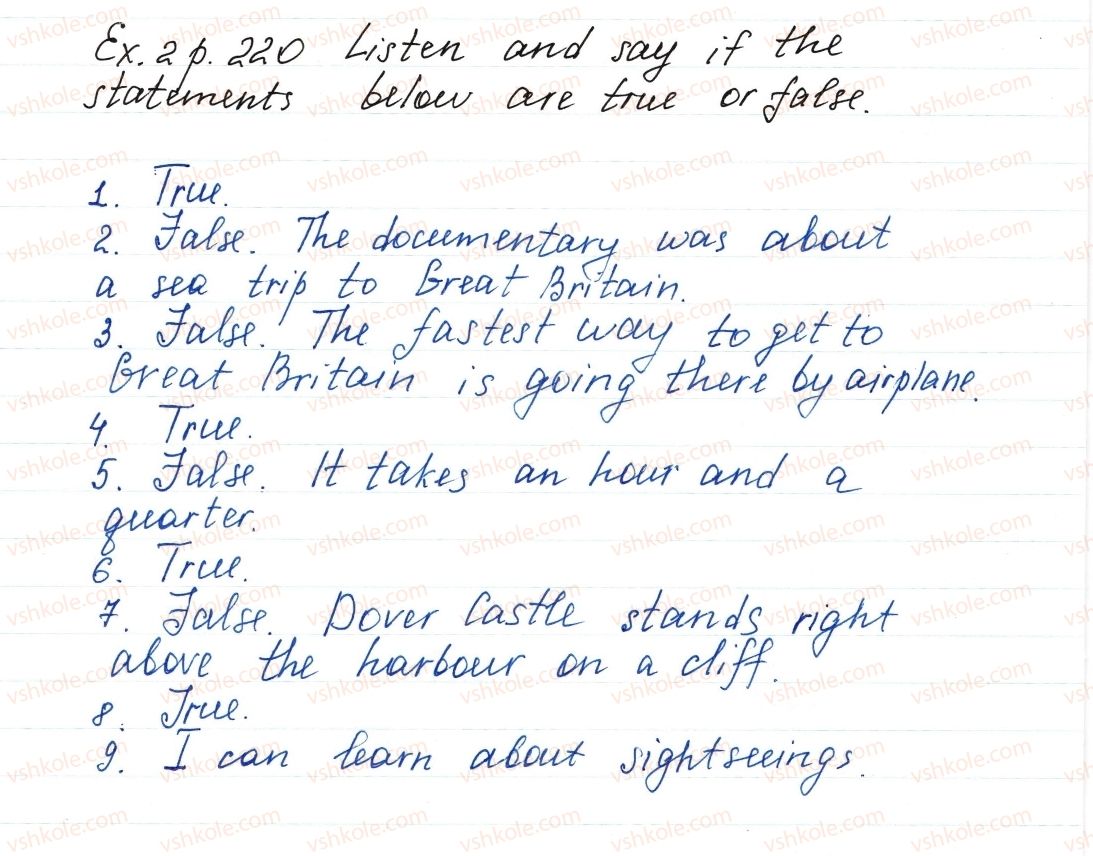 Ex. 2 p. 220 Listen and say if the
statements below are true or false.
1. True.
2. False. The documentary was about
a sea trip to Great Britain.
3. False. The fastest way to get to
Great Britain is going there by airplane.
4. True.
5. False. It takes an hour and a
quarter.
6. True.
7. False. Dover Castle stands right
above the harbour on a cliff.
8. True.
9. I can learn about sightseeings.